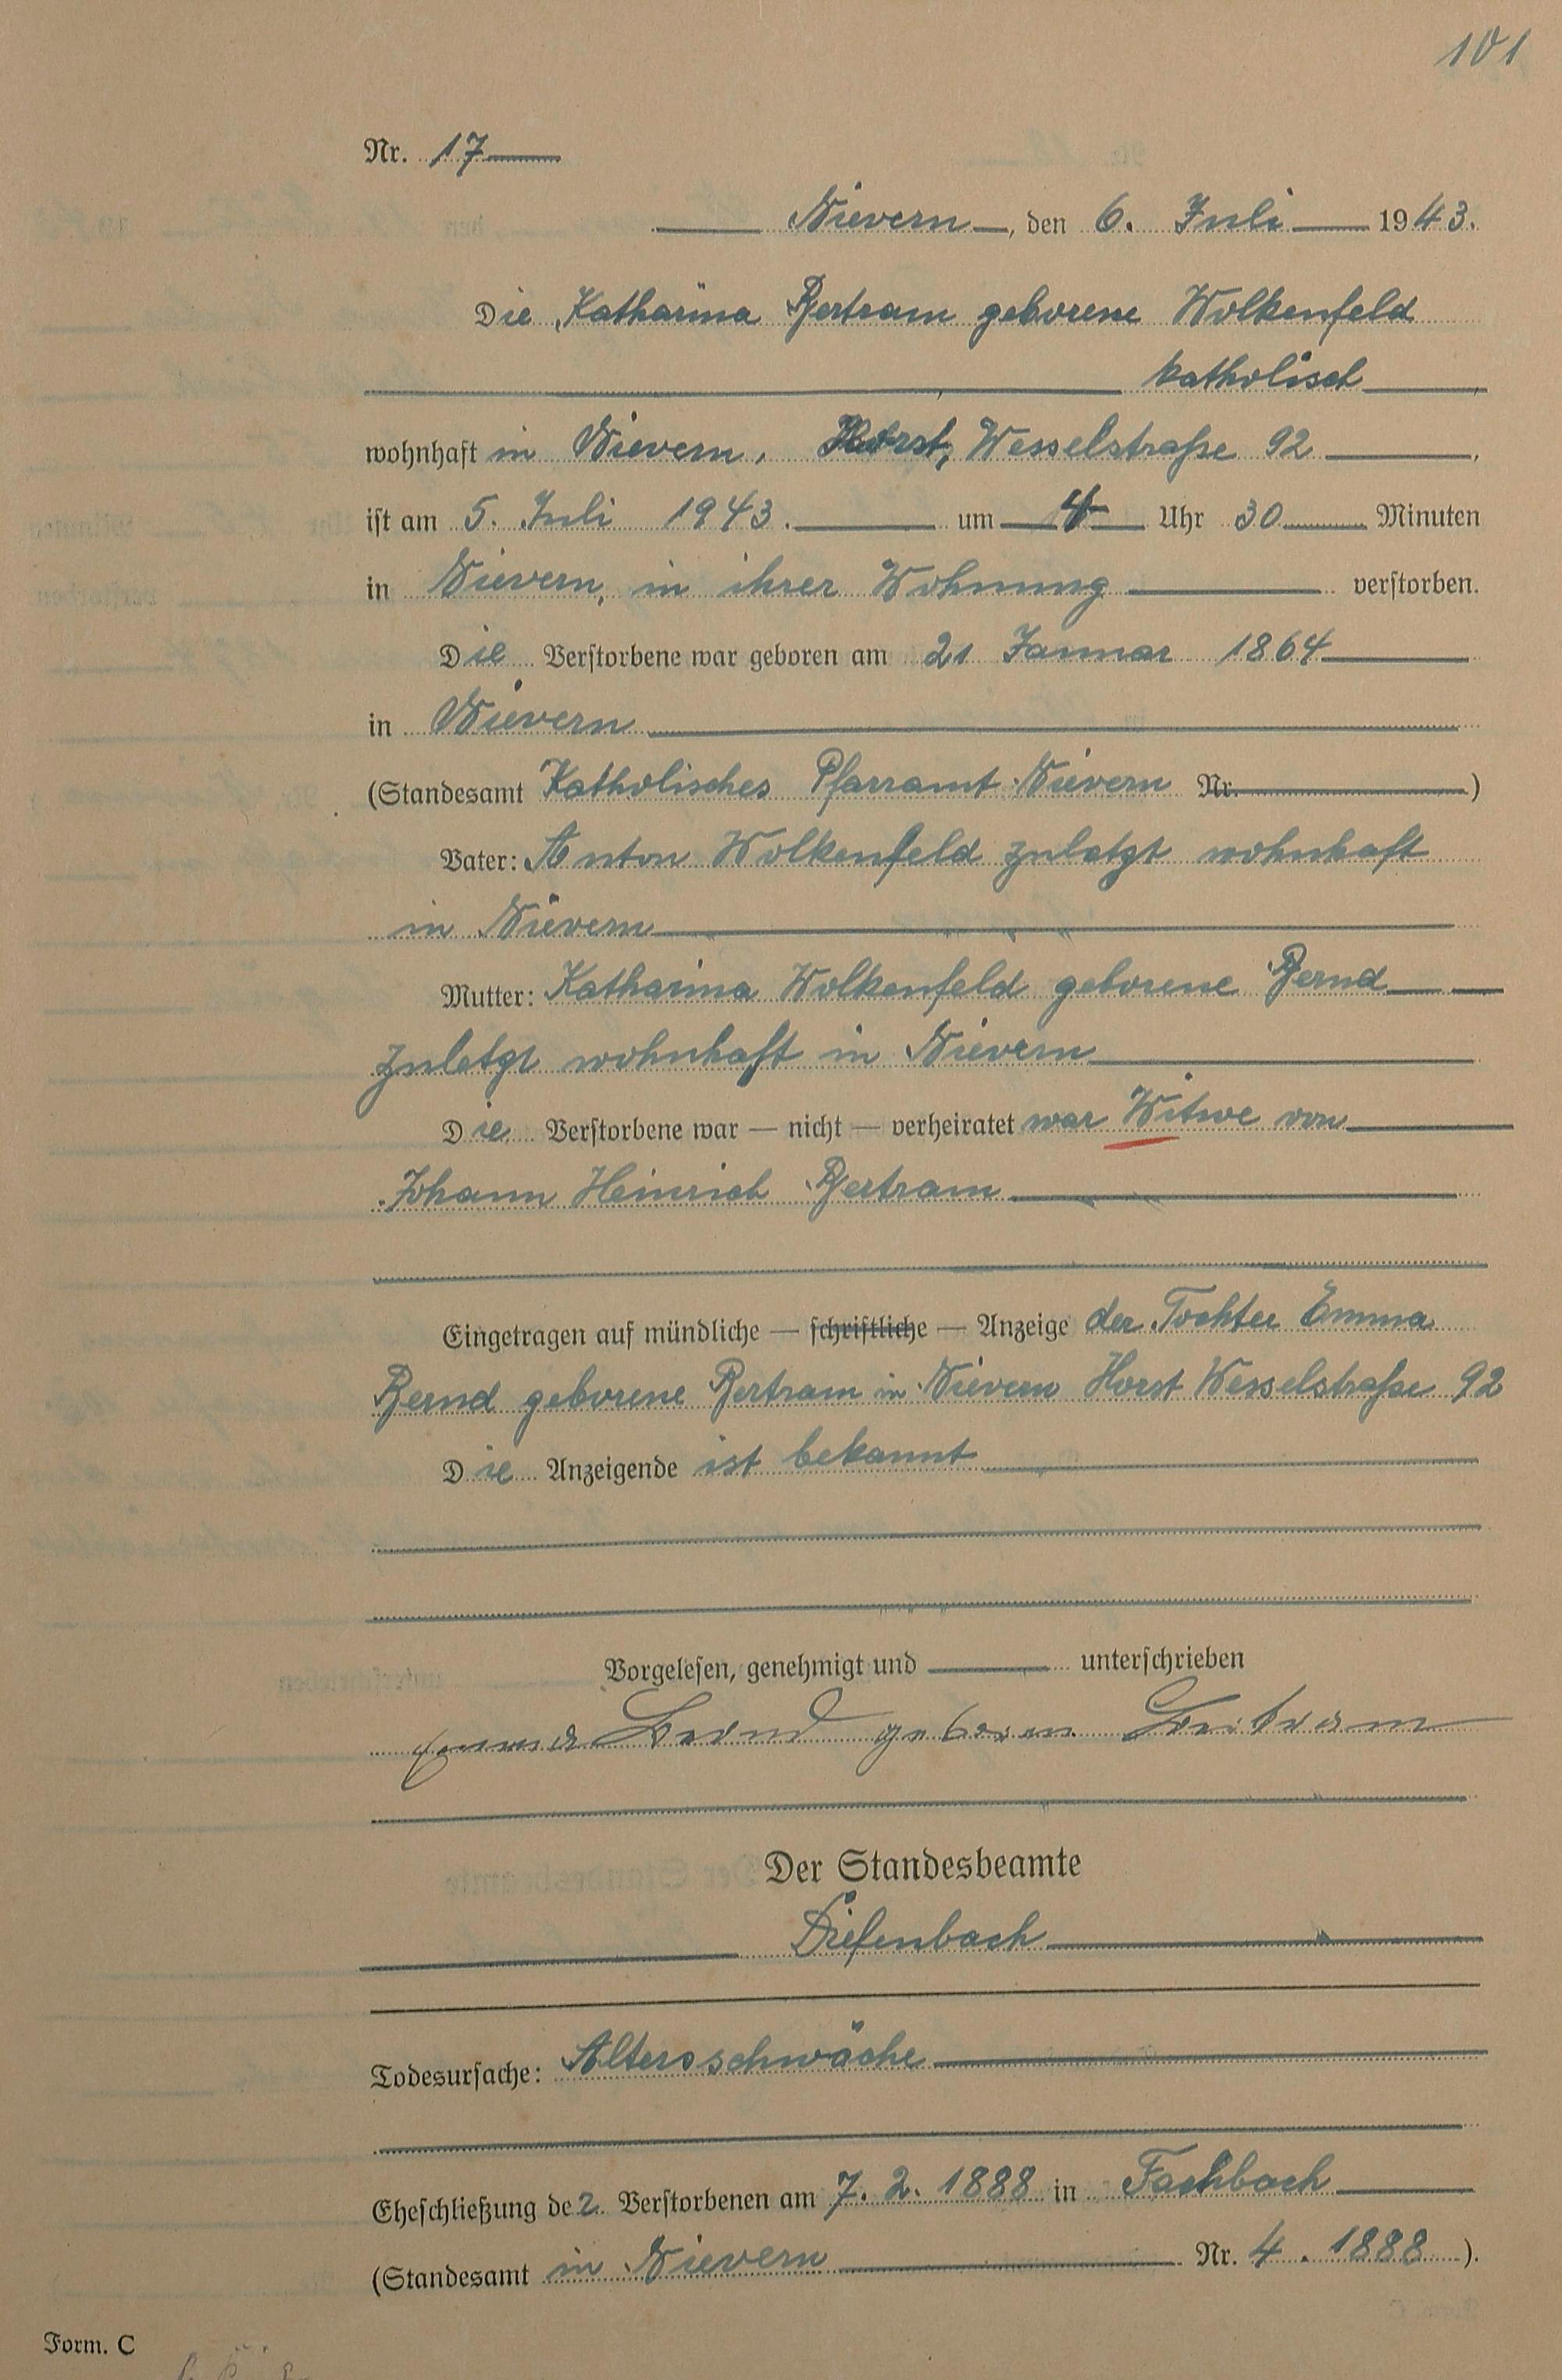 101
Nr. 17
Nievern, den 6. Juli 1943.
Die Katharina Bertram geborene Wolkenfeld
katholisch
wohnhaft in Nievern, Horst, Wesselstraße 92,
ist am 5. Juli 1943. um 4 Uhr 30 Minuten
in Nievern, in ihrer Wohnung verstorben.
Die Verstorbene war geboren am 21 Januar 1864
in Nievern
(Standesamt Katholisches Pfarramt Nievern Nr. )
Vater: Anton Wolkenfeld zuletzt wohnhaft
in Nievern
Mutter: Katharina Wolkenfeld geborene Bernd
zuletzt wohnhaft in Nievern
Die Verstorbene war — nicht — verheiratet war Witwe von
Johann Heinrich Bertram
Eingetragen auf mündliche — schriftliche — Anzeige der Tochter Emma
Bernd geborene Bertram in Nievern Horst Wesselstraße 92
Die Anzeigende ist bekannt
Vorgelesen, genehmigt und unterschrieben
Emma Bernd geboren Bertram
Der Standesbeamte
Diefenbach
Todesursache: Altersschwäche
Eheschließung der Verstorbenen am 7. 2. 1888 in Fachbach
(Standesamt in Nievern Nr. 4. 1888 ).
Form. C